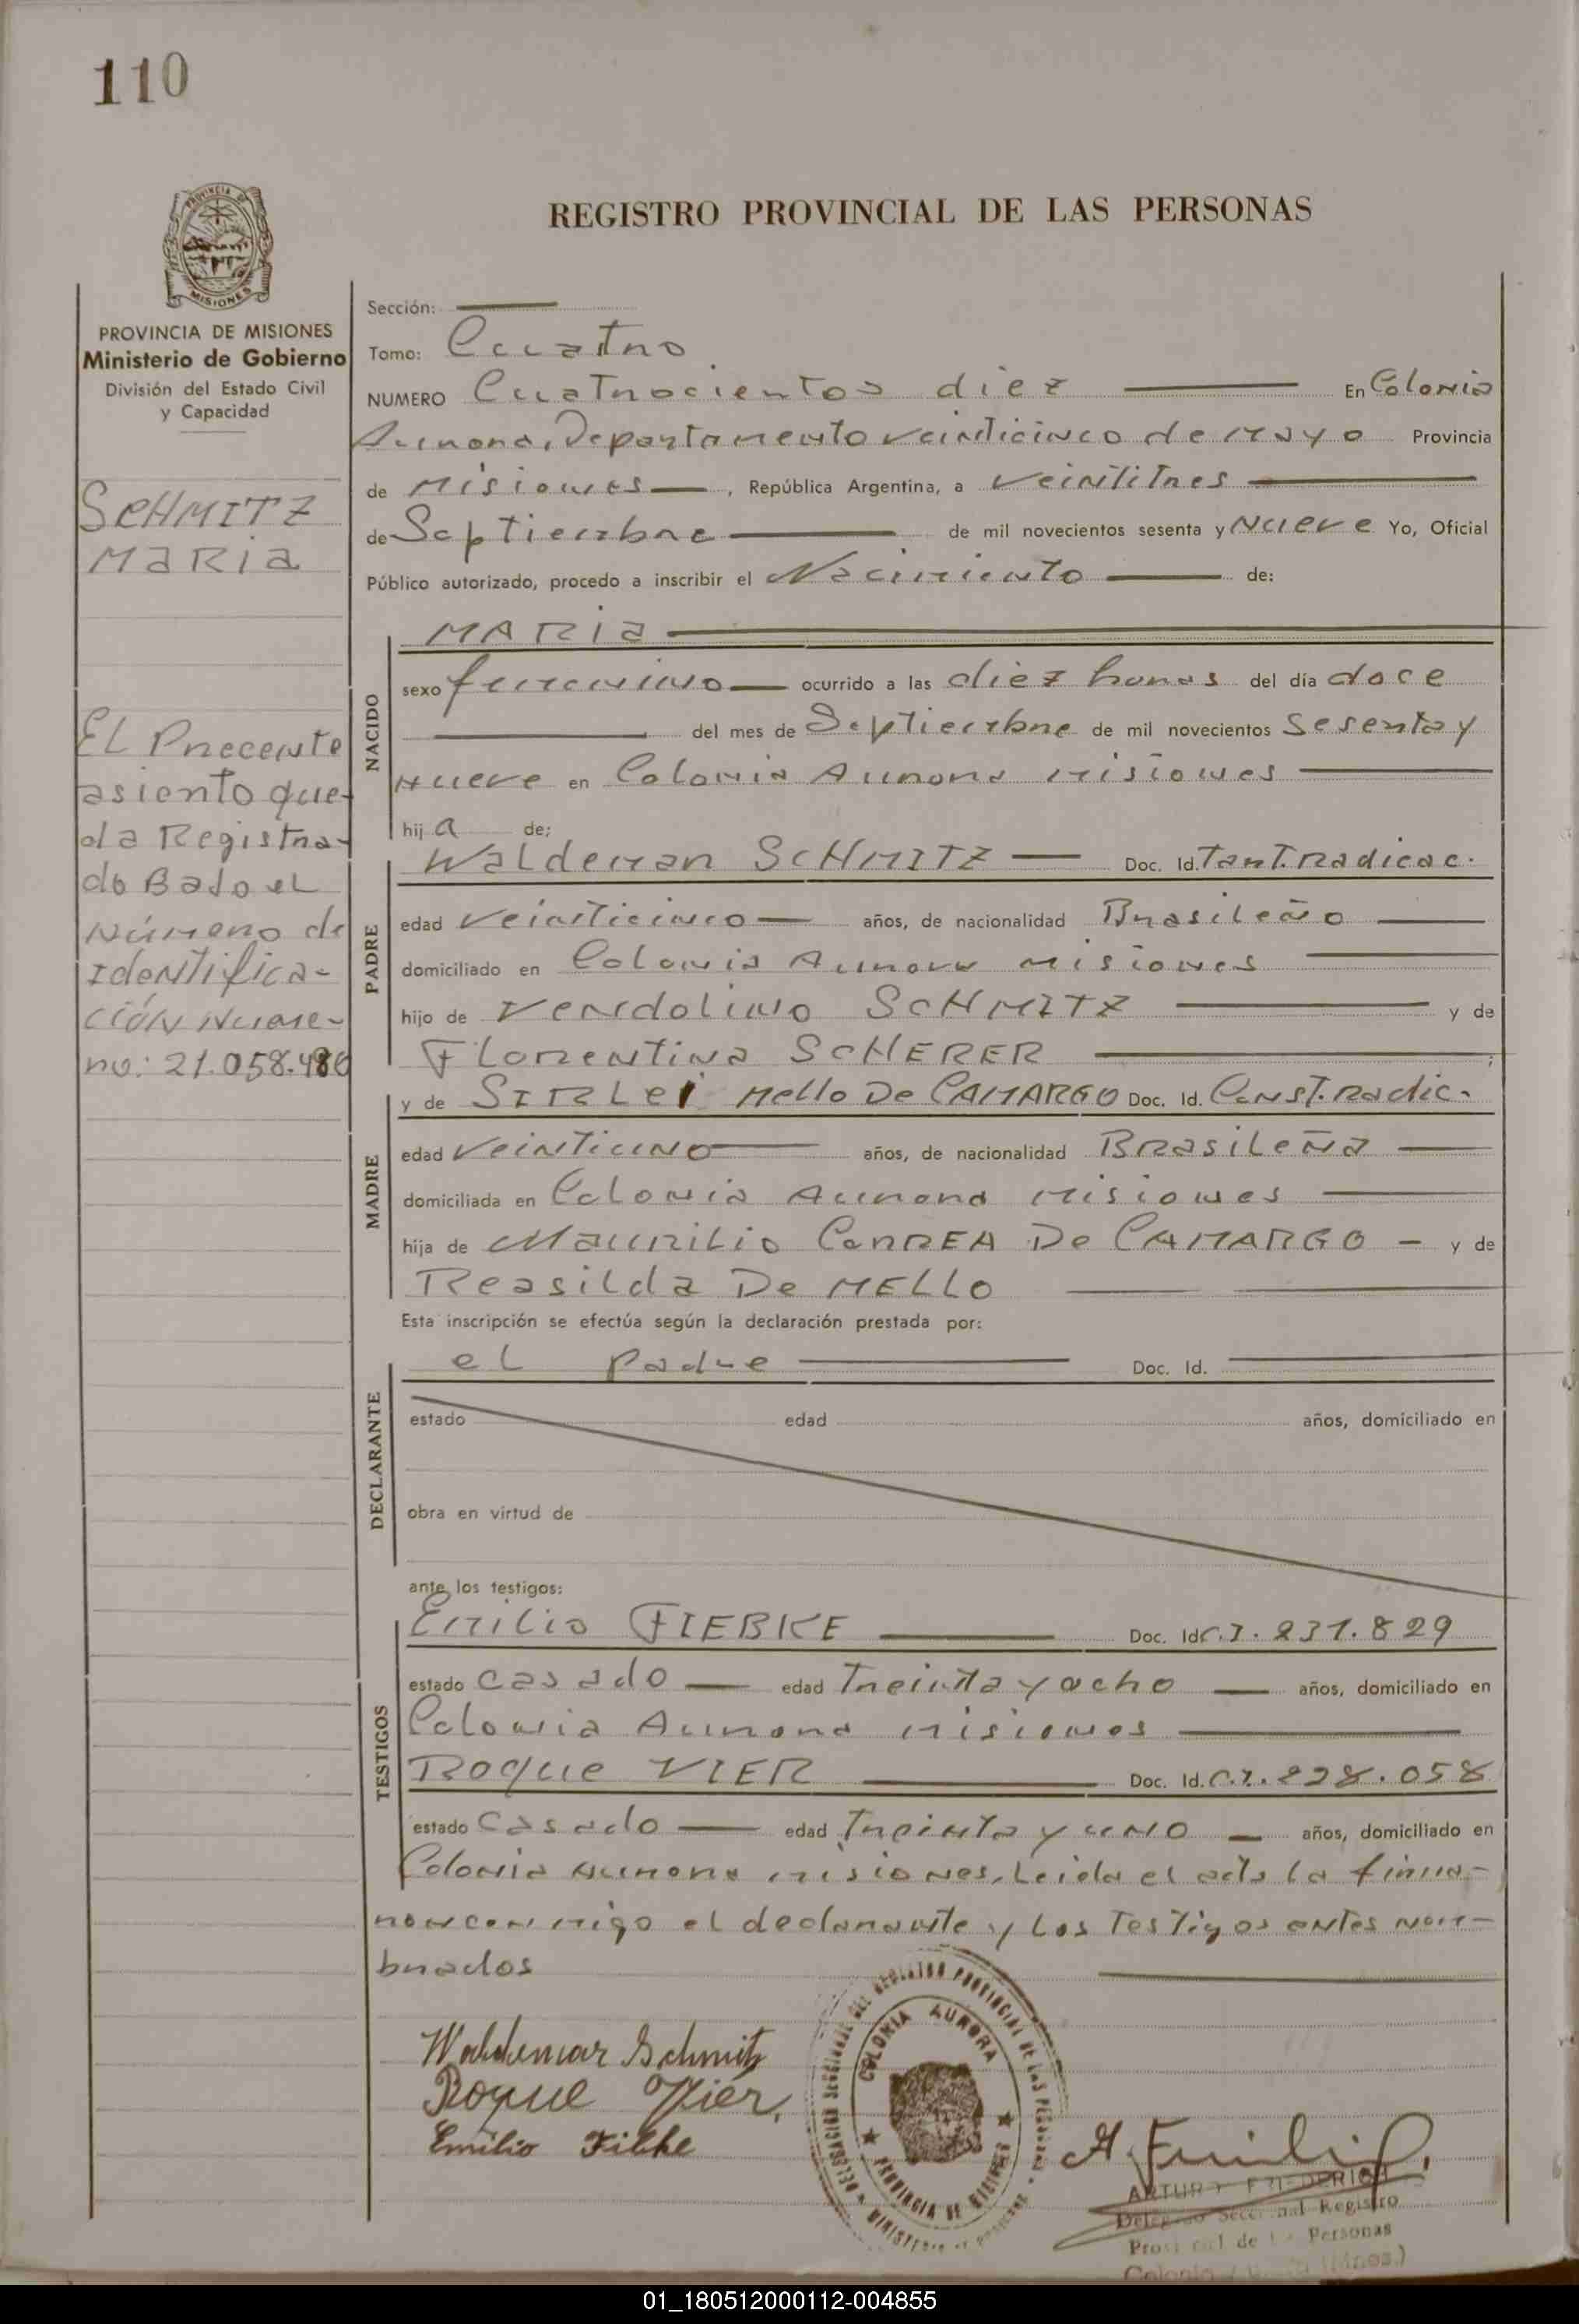 110
PROVINCIA DE
MISIONES
REGISTRO PROVINCIAL DE LAS PERSONAS
PROVINCIA DE MISIONES
Ministerio de Gobierno
División del Estado Civil
y Capacidad
SCHMITZ
MARIA
EL Precente
asiento que-
da Registra-
do Bajo el
Número de
Identifica-
ción Núme-
ro: 21.058.486
Sección:
Tomo: Cuatro
NUMERO Cuatrocientos diez En Colonia
Aurora, Departamento veinticinco de mayo Provincia
de Misiones , República Argentina, a veintitres
de Septiembre de mil novecientos sesenta y Nueve Yo, Oficial
Público autorizado, procedo a inscribir el Nacimiento de:
NACIDO
MARIA
sexo femenino ocurrido a las diez horas del día doce
del mes de Septiembre de mil novecientos Sesenta y
Nueve en Colonia Aurora Misiones
hij a de:
PADRE
Waldemar SCHMITZ Doc. Id. Tant. Radicac.
edad veinticinco años, de nacionalidad Brasileño
domiciliado en Colonia Aurora Misiones
hijo de Vendolino SCHMITZ y de
Florentina SCHERER ;
MADRE
y de SIRLEI Mello De CAMARGO Doc. Id. Const. Radic.
edad veintiuno años, de nacionalidad Brasileña
domiciliada en Colonia Aurora Misiones
hija de Maurilio CorREA De CAMARGO y de
Reasilda De MELLO
Esta inscripción se efectúa según la declaración prestada por:
DECLARANTE
el Padre Doc. Id.
estado edad años, domiciliado en
obra en virtud de
ante los testigos:
TESTIGOS
Emilio FIEBKE Doc. Id. C.I. 231.829
estado casado edad Treinta y ocho años, domiciliado en
Colonia Aurora Misiones
Roque VIER Doc. Id. C.I. 228.058
estado Casado edad Treinta y uno años, domiciliado en
Colonia Aurora Misiones, Leida el acta la firma-
ron conmigo el declarante y los Testigos antes nom-
brados
Waldemar Schmitz
Roque Vier.
Emilio Fibke
DELEGACION SECCIONAL DEL REGISTRO PROVINCIAL DE LAS PERSONAS
COLONIA AURORA
PROVINCIA DE MISIONES
MINISTERIO DE GOBIERNO
ARTURO FRIDERICH
Delegado Seccional Registro
Provincial de las Personas
Colonia Aurora (Mnes.)
01_180512000112-004855